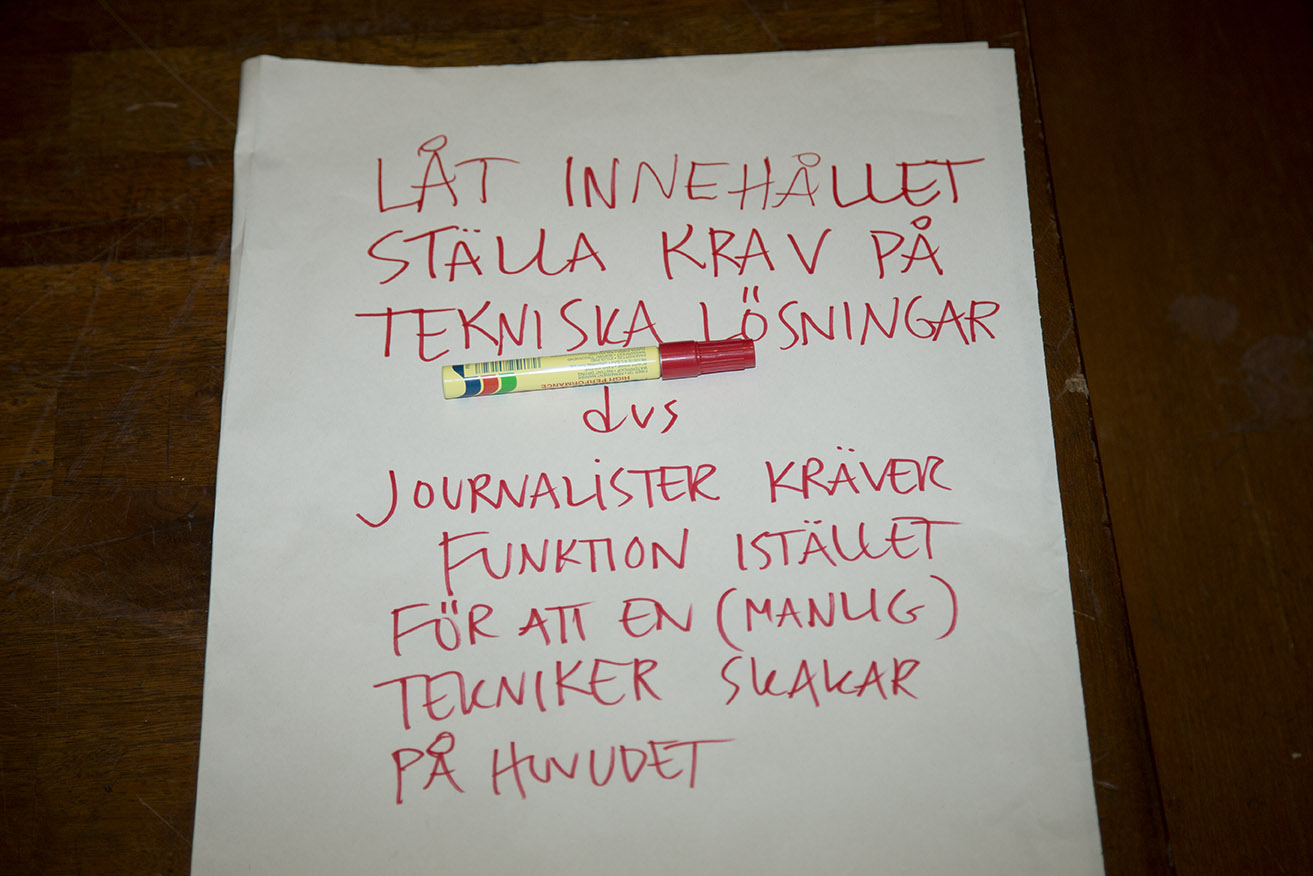 LÅT INNEHÅLLET
STÄLLA KRAV PÅ
TEKNISKA LÖSNINGAR
HIGH PERFORMANCE
dvs
JOURNALISTER KRÄVER
FUNKTION ISTÄLLET
FÖR ATT EN (MANLIG)
TEKNIKER SKAKAR
PÅ HUVUDET